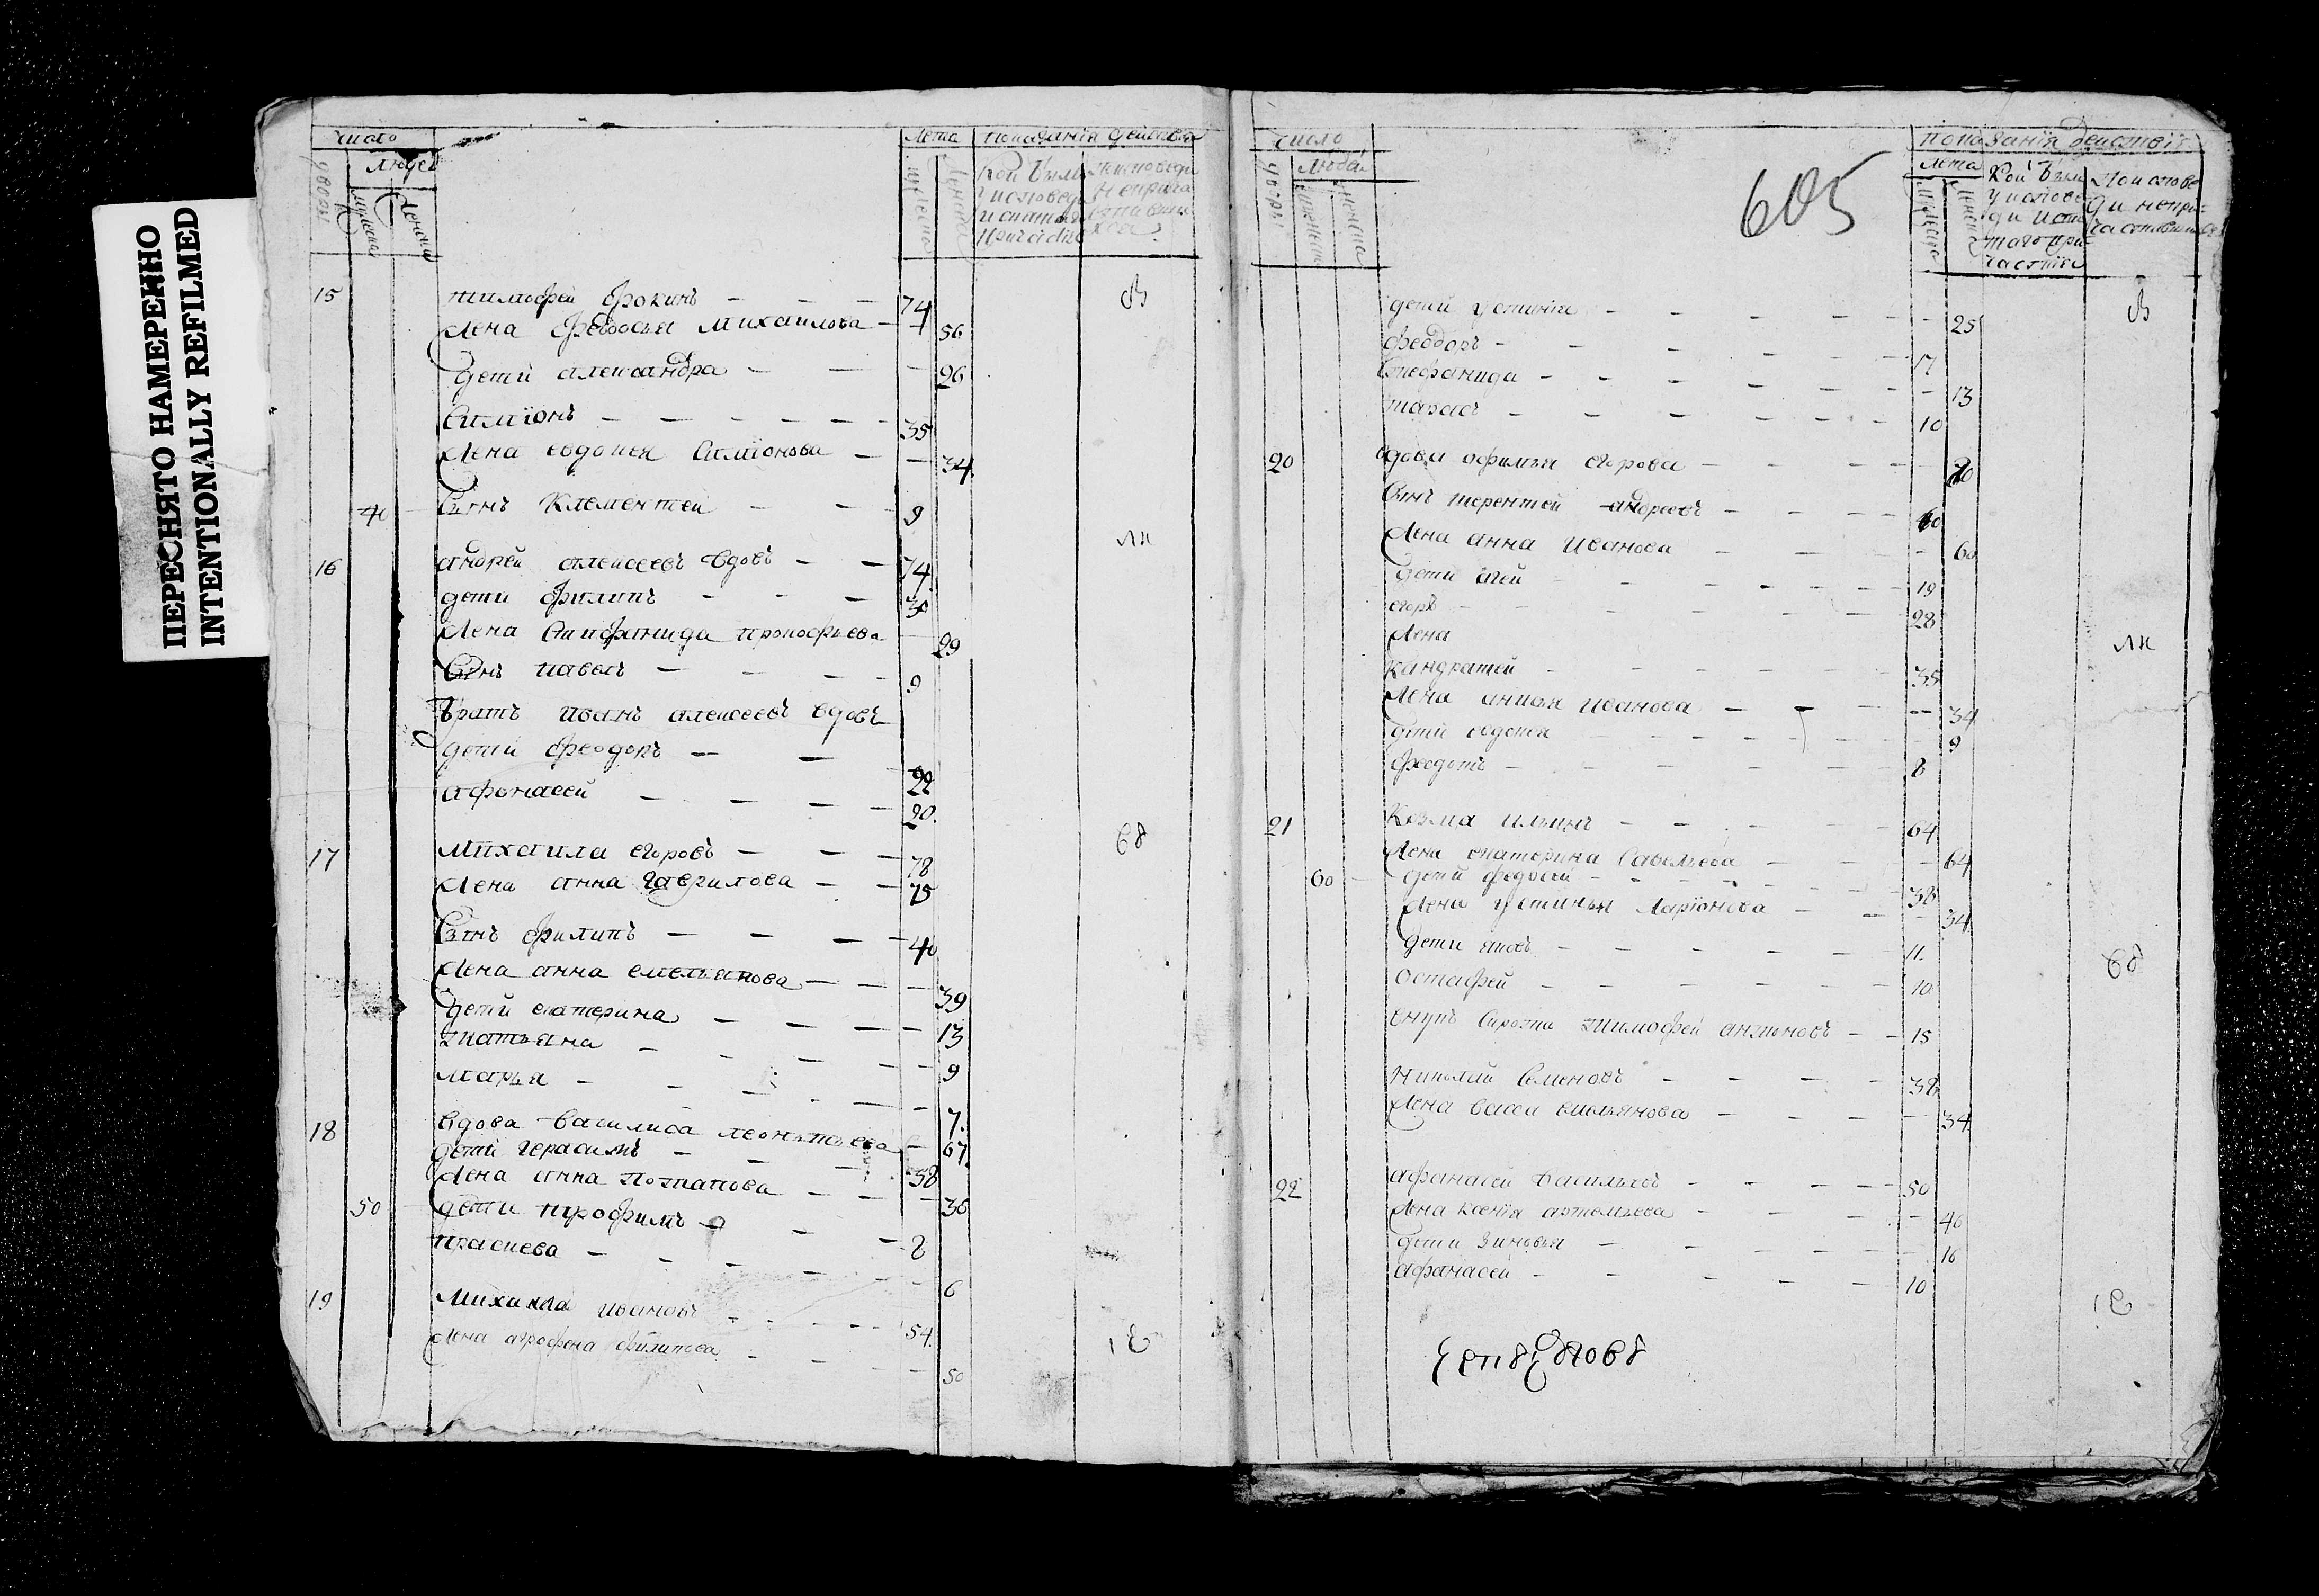 ПЕРЕСНЯТО НАМЕРЕННО
INTENTIONALLY REFILMED
число
Лета показания действия
людей
дворы
мужеска
женска
мужеска
женска
Кои были
у исповеди
и святаго
причастия
15 тимофей фокинъ 74
Жена федосья Михаилова 56
дети александра 26
Симионъ 35
Жена евдокея Симионова 34
40 Сынъ Клементей 9
16 андрей алексеевъ вдовъ 74
дети филипъ 30
Жена Стифанида прокофьева 29
Сынъ павелъ 9
братъ иванъ алексеевъ вдовъ
дети феодоръ 22
афонасей 20
17 Михаила егоровъ 78
Жена анна гаврилова 75
Сынъ филипъ 40
Жена анна емельянова 39
дети екатерина 13
татьяна 9
марья 7
18 вдова василиса леонтьева 67
дети герасимъ 38
Жена анна потапова 36
50 дети трофимъ 8
прасцева 6
19 Михаила ивановъ 54
Жена агрофена филипова 50
число
показания действия
людей
лета
дворы
женска
мужеска
женска
Кои были
у испове
ди и свя
таго при
частия
605
дети устиния 25
феодоръ 17
Стефанида 13
тарасъ 10
20 вдова офимья егорова
Сынъ терентей андреевъ 60
Жена анна Иванова 60
дети агей 19
егоръ 28
Жена
кандратей 35
Жена анисья иванова 34
дети евдокея 9
феодотъ 8
21 Козма ильинъ 64
Жена екатерина Савельева 64
60 дети федосей 38
Жена устинья Ларионова 34
дети яковъ 11
остафей 10
внукъ Сирота тимофей антоновъ 15
Николай Семеновъ 38
Жена васса емельянова 34
22 афанасей васильевъ 50
Жена ксения артемьева 46
дети зиновья 16
афанасей 10